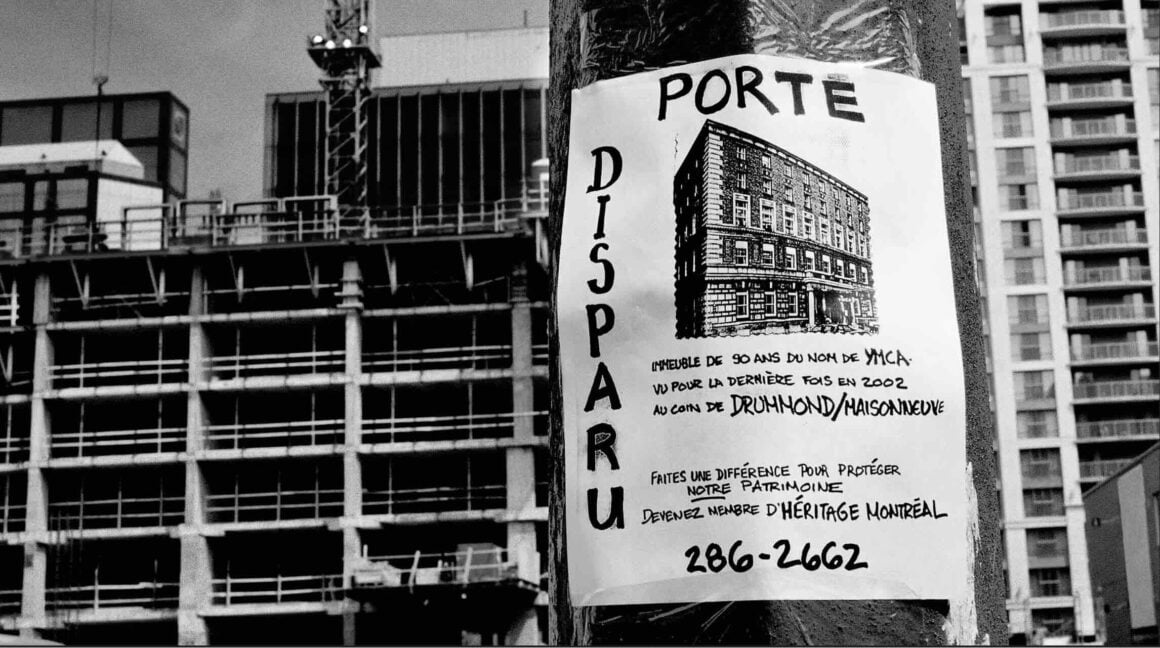 PORTÉ
DISPARU
IMMEUBLE DE 90 ANS DU NOM DE YMCA.
VU POUR LA DERNIÈRE FOIS EN 2002
AU COIN DE DRUMMOND/MAISONNEUVE
FAITES UNE DIFFÉRENCE POUR PROTÉGER
NOTRE PATRIMOINE
DEVENEZ MEMBRE D'HÉRITAGE MONTRÉAL
286-2662